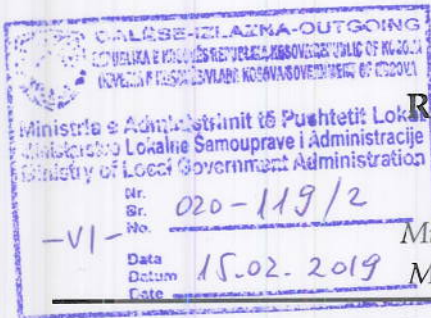 DALËSE-IZLAZNA-OUTGOING
REPUBLIKA E KOSOVËS/REPUBLIKA KOSOVO/REPUBLIC OF KOSOVA
QEVERIA E KOSOVËS/VLADA KOSOVA/GOVERNMENT OF KOSOVA
R
Ministria e Administrimit të Pushtetit Lokal
Ministarstvo Lokalne Samouprave i Administracije
Ministry of Local Government Administration
Nr.
Br. 020-119/2
No.
-VI-
Data
Datum 15.02.2019
Date